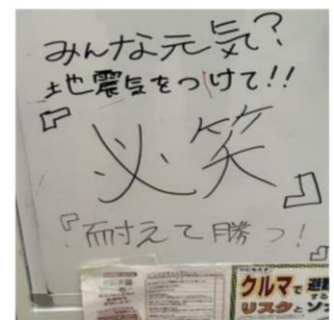 みんな元気?
地震気をつけて!!
『必笑』
『耐えて勝つ!
クルマで避
リスクとソ